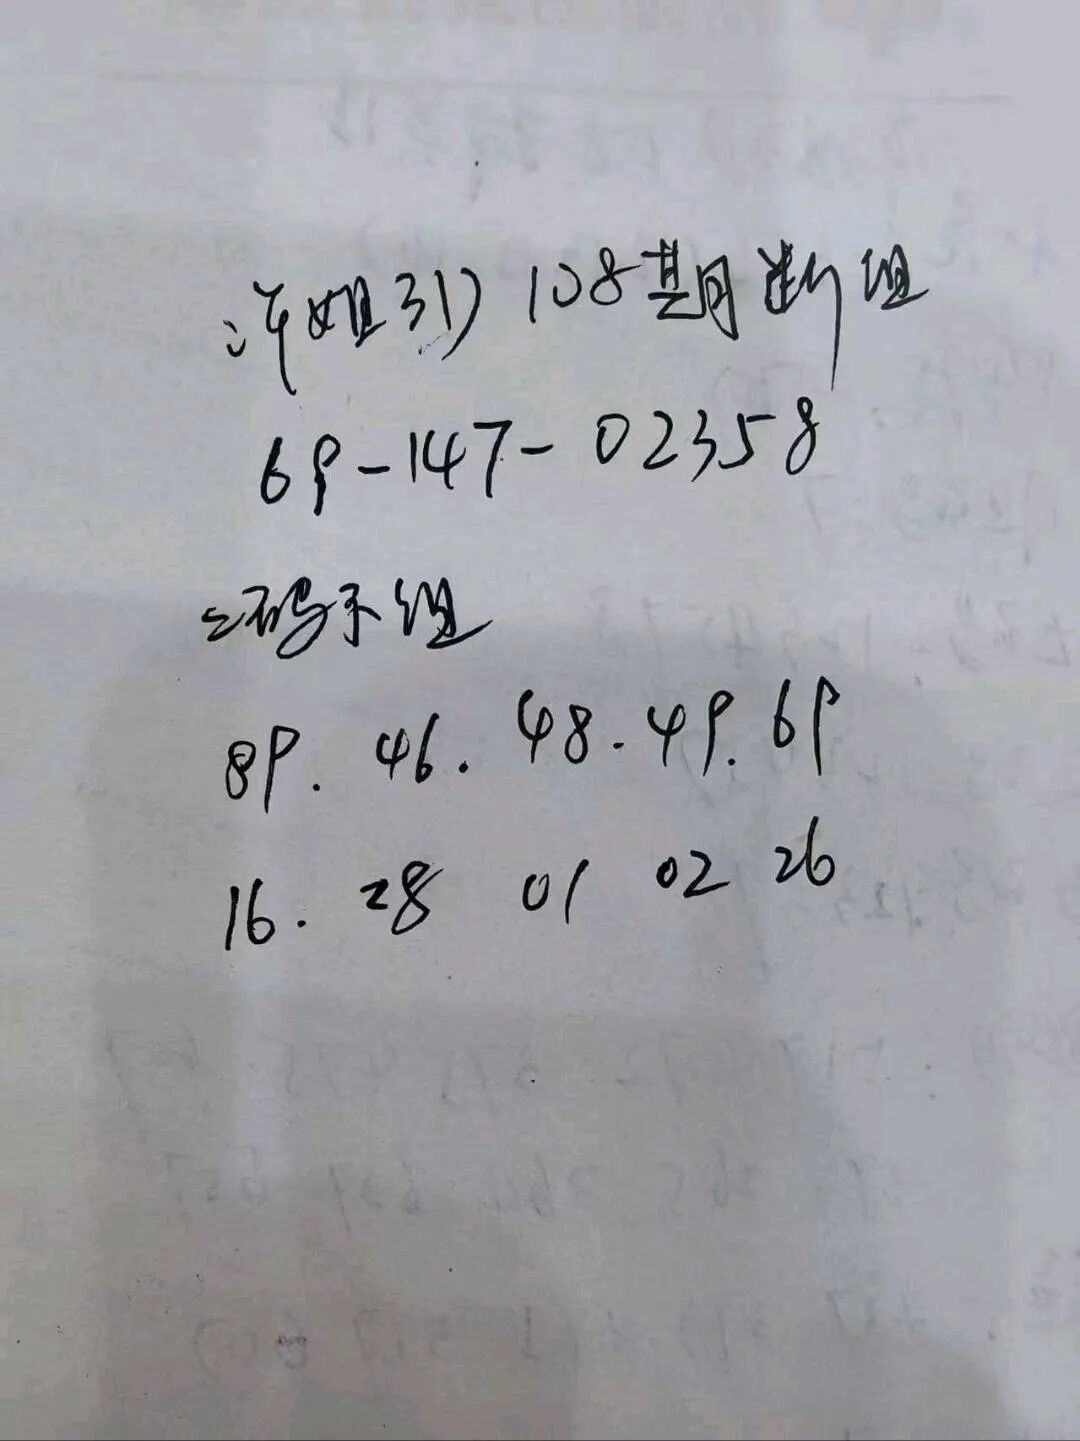 许姐3D108期断组
69-147-02358
二码不组
89. 46. 48. 49. 69
16. 28 01 02 26